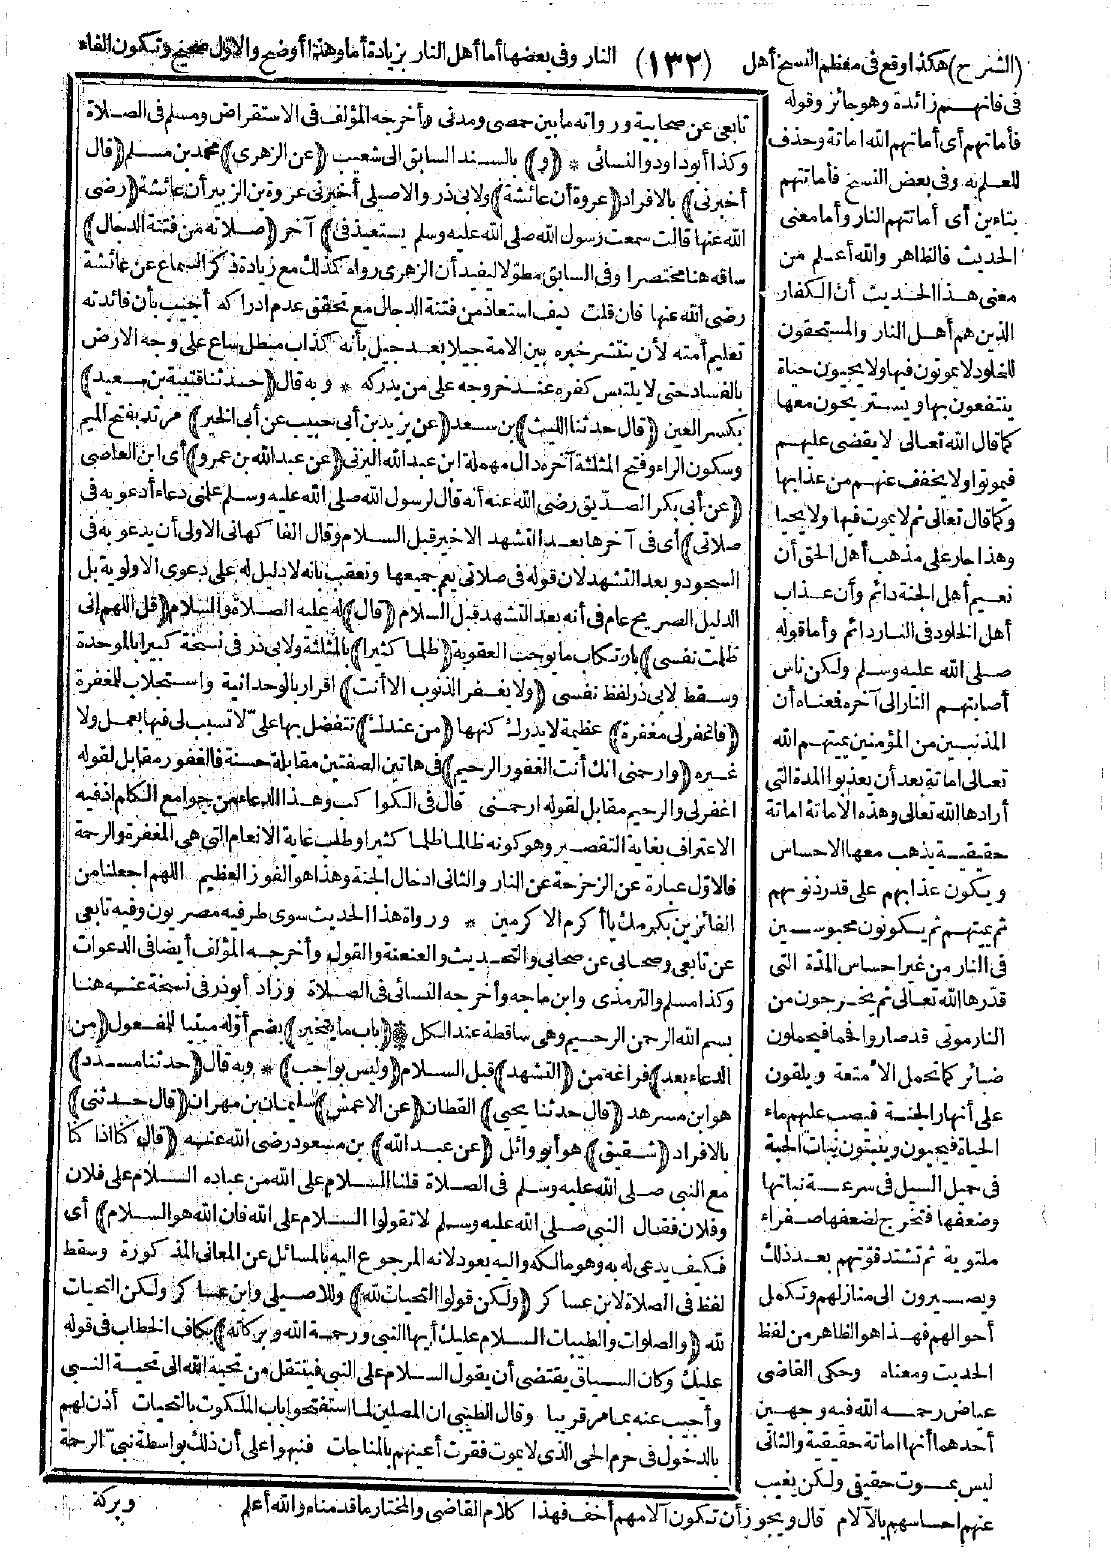 (الشرح) هكذا وقع فى معظم النسخ أهل (١٣٢) النار وفى بعضها أما أهل النار بزيادة أما وهذا أوضح والاوّل صحيح وتكون الفاء
فى فانهم زائدة وهو جائز وقوله
فأماتهم أى أماتهم الله اماتة وحذف
للعلم به وفى بعض النسخ فأماتتهم
بتاءين أى أماتتهم النار وأما معنى
الحديث فالظاهر والله أعلم من
معنى هذا الحديث أن الكفار
الذين هم أهل النار والمستحقون
للخلود لا يموتون فيها ولا يحيون حياة
ينتفعون بها ويستريحون معها
كما قال الله تعالى لا يقضى عليهم
فيموتوا ولا يخفف عنهم من عذابها
وكما قال تعالى ثم لا يموت فيها ولا يحيا
وهذا جار على مذهب أهل الحق أن
نعيم أهل الجنة دائم وأن عذاب
أهل الخلود فى النار دائم وأما قوله
صلى الله عليه وسلم ولكن ناس
أصابتهم النار الى آخره فمعناه أن
المذنبين من المؤمنين يميتهم الله
تعالى اماتة بعد أن يعذبوا المدة التى
أرادها الله تعالى وهذه الاماتة اماتة
حقيقية يذهب معها الاحساس
ويكون عذابهم على قدر ذنوبهم
ثم يميتهم ثم يكونون محبوسين
فى النار من غير احساس المدّة التى
قدّرها الله تعالى ثم يخرجون من
النار موتى قد صاروا فحما فيحملون
ضبائر كما تحمل الأمتعة ويلقون
على أنهار الجنة فيصب عليهم ماء
الحياة فيحيون وينبتون نبات الحبة
فى حميل السيل فى سرعة نباتها
وضعفها فتخرج لضعفها صفراء
ملتوية ثم تشتد قوتهم بعد ذلك
ويصيرون الى منازلهم وتكمل
أحوالهم فهذا هو الظاهر من لفظ
الحديث ومعناه وحكى القاضى
عياض رحمه الله فيه وجهين
أحدهما أنها اماتة حقيقية والثانى
ليس بموت حقيقى ولكن يغيب
عنهم احساسهم بالآلام قال ويجوز أن تكون آلامهم أخف فهذا كلام القاضى والمختار ما قدمناه والله أعلم
تابعى عن صحابية ورواته ما بين حمصى ومدنى وأخرجه المؤلف فى الاستقراض ومسلم فى الصلاة
وكذا أبو داود والنسائى * (و) بالسند السابق الى شعيب (عن الزهرى) محمد بن مسلم (قال
أخبرنى) بالافراد (عروة أن عائشة) ولابى ذر والاصيلى أخبرنى عروة بن الزبير أن عائشة (رضى
الله عنها قالت سمعت رسول الله صلى الله عليه وسلم يستعيذ فى) آخر (صلاته من فتنة الدجال)
ساقه هنا مختصرا وفى السابق مطوّلا ليفيد أن الزهرى رواه كذلك مع زيادة ذكر السماع عن عائشة
رضى الله عنها فان قلت كيف استعاذ من فتنة الدجال مع تحقق عدم ادراكه أجيب بأن فائدته
تعليم أمته لأن ينتشر خبره بين الامة جيلا بعد جيل بأنه كذاب مبطل ساع على وجه الارض
بالفساد حتى لا يلتبس كفره عند خروجه على من يدركه * وبه قال (حدثنا قتيبة بن سعيد)
بكسر العين (قال حدثنا الليث) بن سعد (عن يزيد بن أبى حبيب عن أبى الخير) مرثد بفتح الميم
وسكون الراء وفتح المثلثة آخره دال مهملة ابن عبد الله اليزنى (عن عبد الله بن عمرو) أى ابن العاصى
(عن أبى بكر الصدّيق رضى الله عنه أنه قال لرسول الله صلى الله عليه وسلم علمنى دعاء أدعو به فى
صلاتى) أى فى آخرها بعد التشهد الاخير قبل السلام وقال الفاكهانى الاولى أن يدعو به فى
السجود وبعد التشهد لان قوله فى صلاتى يعم جميعها وتعقب بانه لا دليل له على دعوى الاولوية بل
الدليل الصريح عام فى أنه بعد التشهد قبل السلام (قال) له عليه الصلاة والسلام (قل اللهم انى
ظلمت نفسى) بارتكاب ما يوجب العقوبة (ظلما كثيرا) بالمثلثة ولابى ذر فى نسخة كبيرا بالموحدة
وسقط لابى ذر لفظ نفسى (ولا يغفر الذنوب الا أنت) اقرار بالوحدانية واستجلاب للمغفرة
(فاغفر لى مغفرة) عظيمة لا يدرك كنهها (من عندك) تتفضل بها علىّ لا تسبب لى فيها بعمل ولا
غيره (وارحمنى انك أنت الغفور الرحيم) فى هاتين الصفتين مقابلة حسنة فالغفور مقابل لقوله
اغفر لى والرحيم مقابل لقوله ارحمنى قال فى الكواكب وهذا الدعاء من جوامع الكلم اذ فيه
الاعتراف بغاية التقصير وهو كونه ظالما ظلما كثيرا وطلب غاية الانعام التى هى المغفرة والرحمة
فالاوّل عبارة عن الزحزحة عن النار والثانى ادخال الجنة وهذا هو الفوز العظيم اللهم اجعلنا من
الفائزين بكرمك يا أكرم الاكرمين * ورواة هذا الحديث سوى طرفيه مصريون وفيه تابعى
عن تابعى وصحابى عن صحابى والتحديث والعنعنة والقول وأخرجه المؤلف أيضا فى الدعوات
وكذا مسلم والترمذى وابن ماجه وأخرجه النسائى فى الصلاة وزاد أبو ذر فى نسخة عنه هنا
بسم الله الرحمن الرحيم وهى ساقطة عند الكل * (باب ما يتخير) بضم أوّله مبنيا للمفعول (من
الدعاء بعد) فراغه من (التشهد) قبل السلام (وليس بواجب) * وبه قال (حدثنا مسدد)
هو ابن مسرهد (قال حدثنا يحيى) القطان (عن الاعمش) سليمان بن مهران (قال حدثنى)
بالافراد (شقيق) هو أبو وائل (عن عبد الله) بن مسعود رضى الله عنه (قال كنا اذا كنا
مع النبى صلى الله عليه وسلم فى الصلاة قلنا السلام على الله من عباده السلام على فلان
وفلان فقال النبى صلى الله عليه وسلم لا تقولوا السلام على الله فان الله هو السلام) أى
فكيف يدعى له به وهو مالكه واليه يعود لانه المرجوع اليه بالمسائل عن المعانى المذكورة وسقط
لفظ فى الصلاة لابن عساكر (ولكن قولوا التحيات لله) وللاصيلى وابن عساكر ولكن التحيات
لله (والصلوات والطيبات السلام عليك أيها النبى ورحمة الله وبركاته) بكاف الخطاب فى قوله
عليك وكان السياق يقتضى أن يقول السلام على النبى فينتقل من تحية الله الى تحية النبى
وأجيب عنه بما مر قريبا وقال الطيبى ان المصلين لما استفتحوا باب الملكوت بالتحيات أذن لهم
بالدخول فى حرم الحى الذى لا يموت فقرت أعينهم بالمناجات فنبهوا على أن ذلك بواسطة نبىّ الرحمة
وبركة